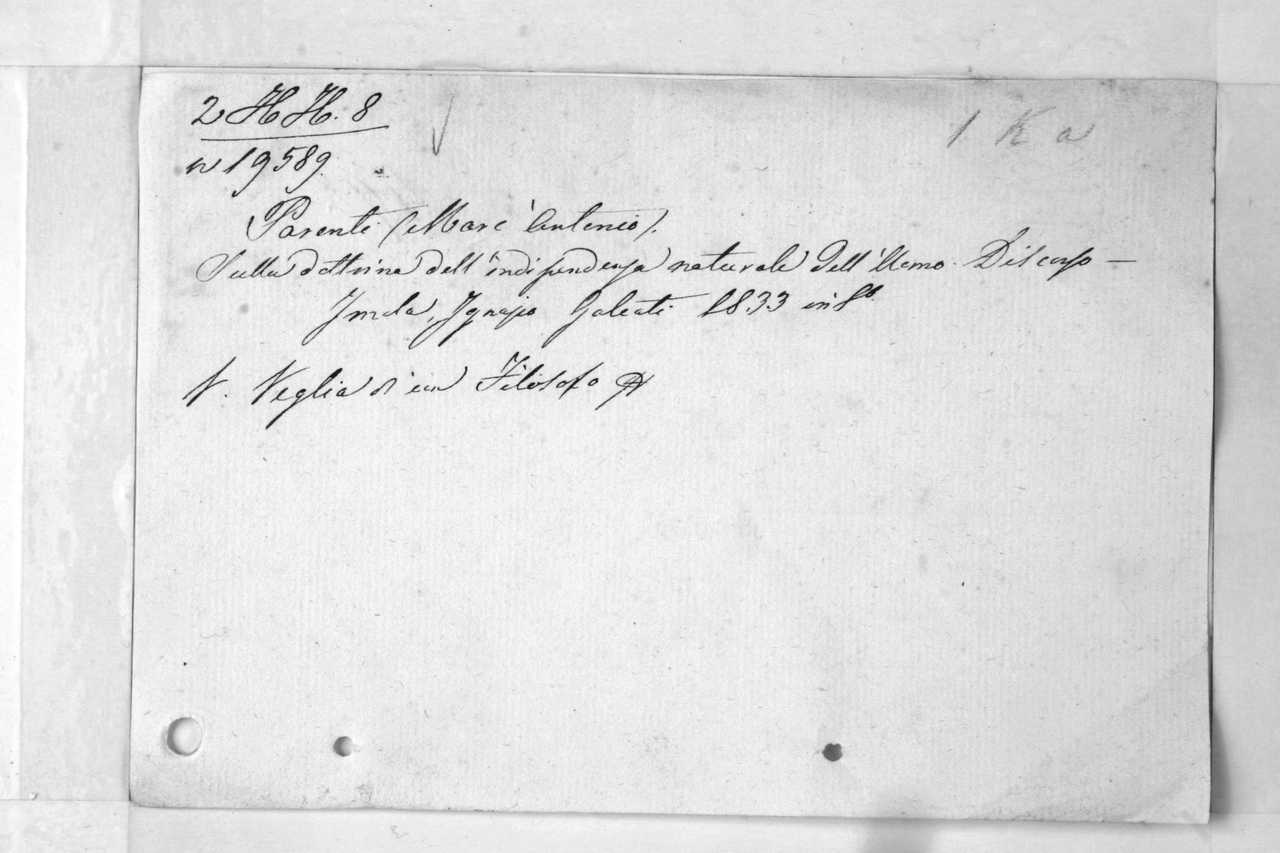 2 HH. 8
1 K a
n 19589.
Parenti (Marc'Antonio).
Sulla dottrina dell'indipendenza naturale dell'Uomo. Discorso —
Imola, Ignazio Galeati 1833 in 8o.
V. Veglia di un Filosofo